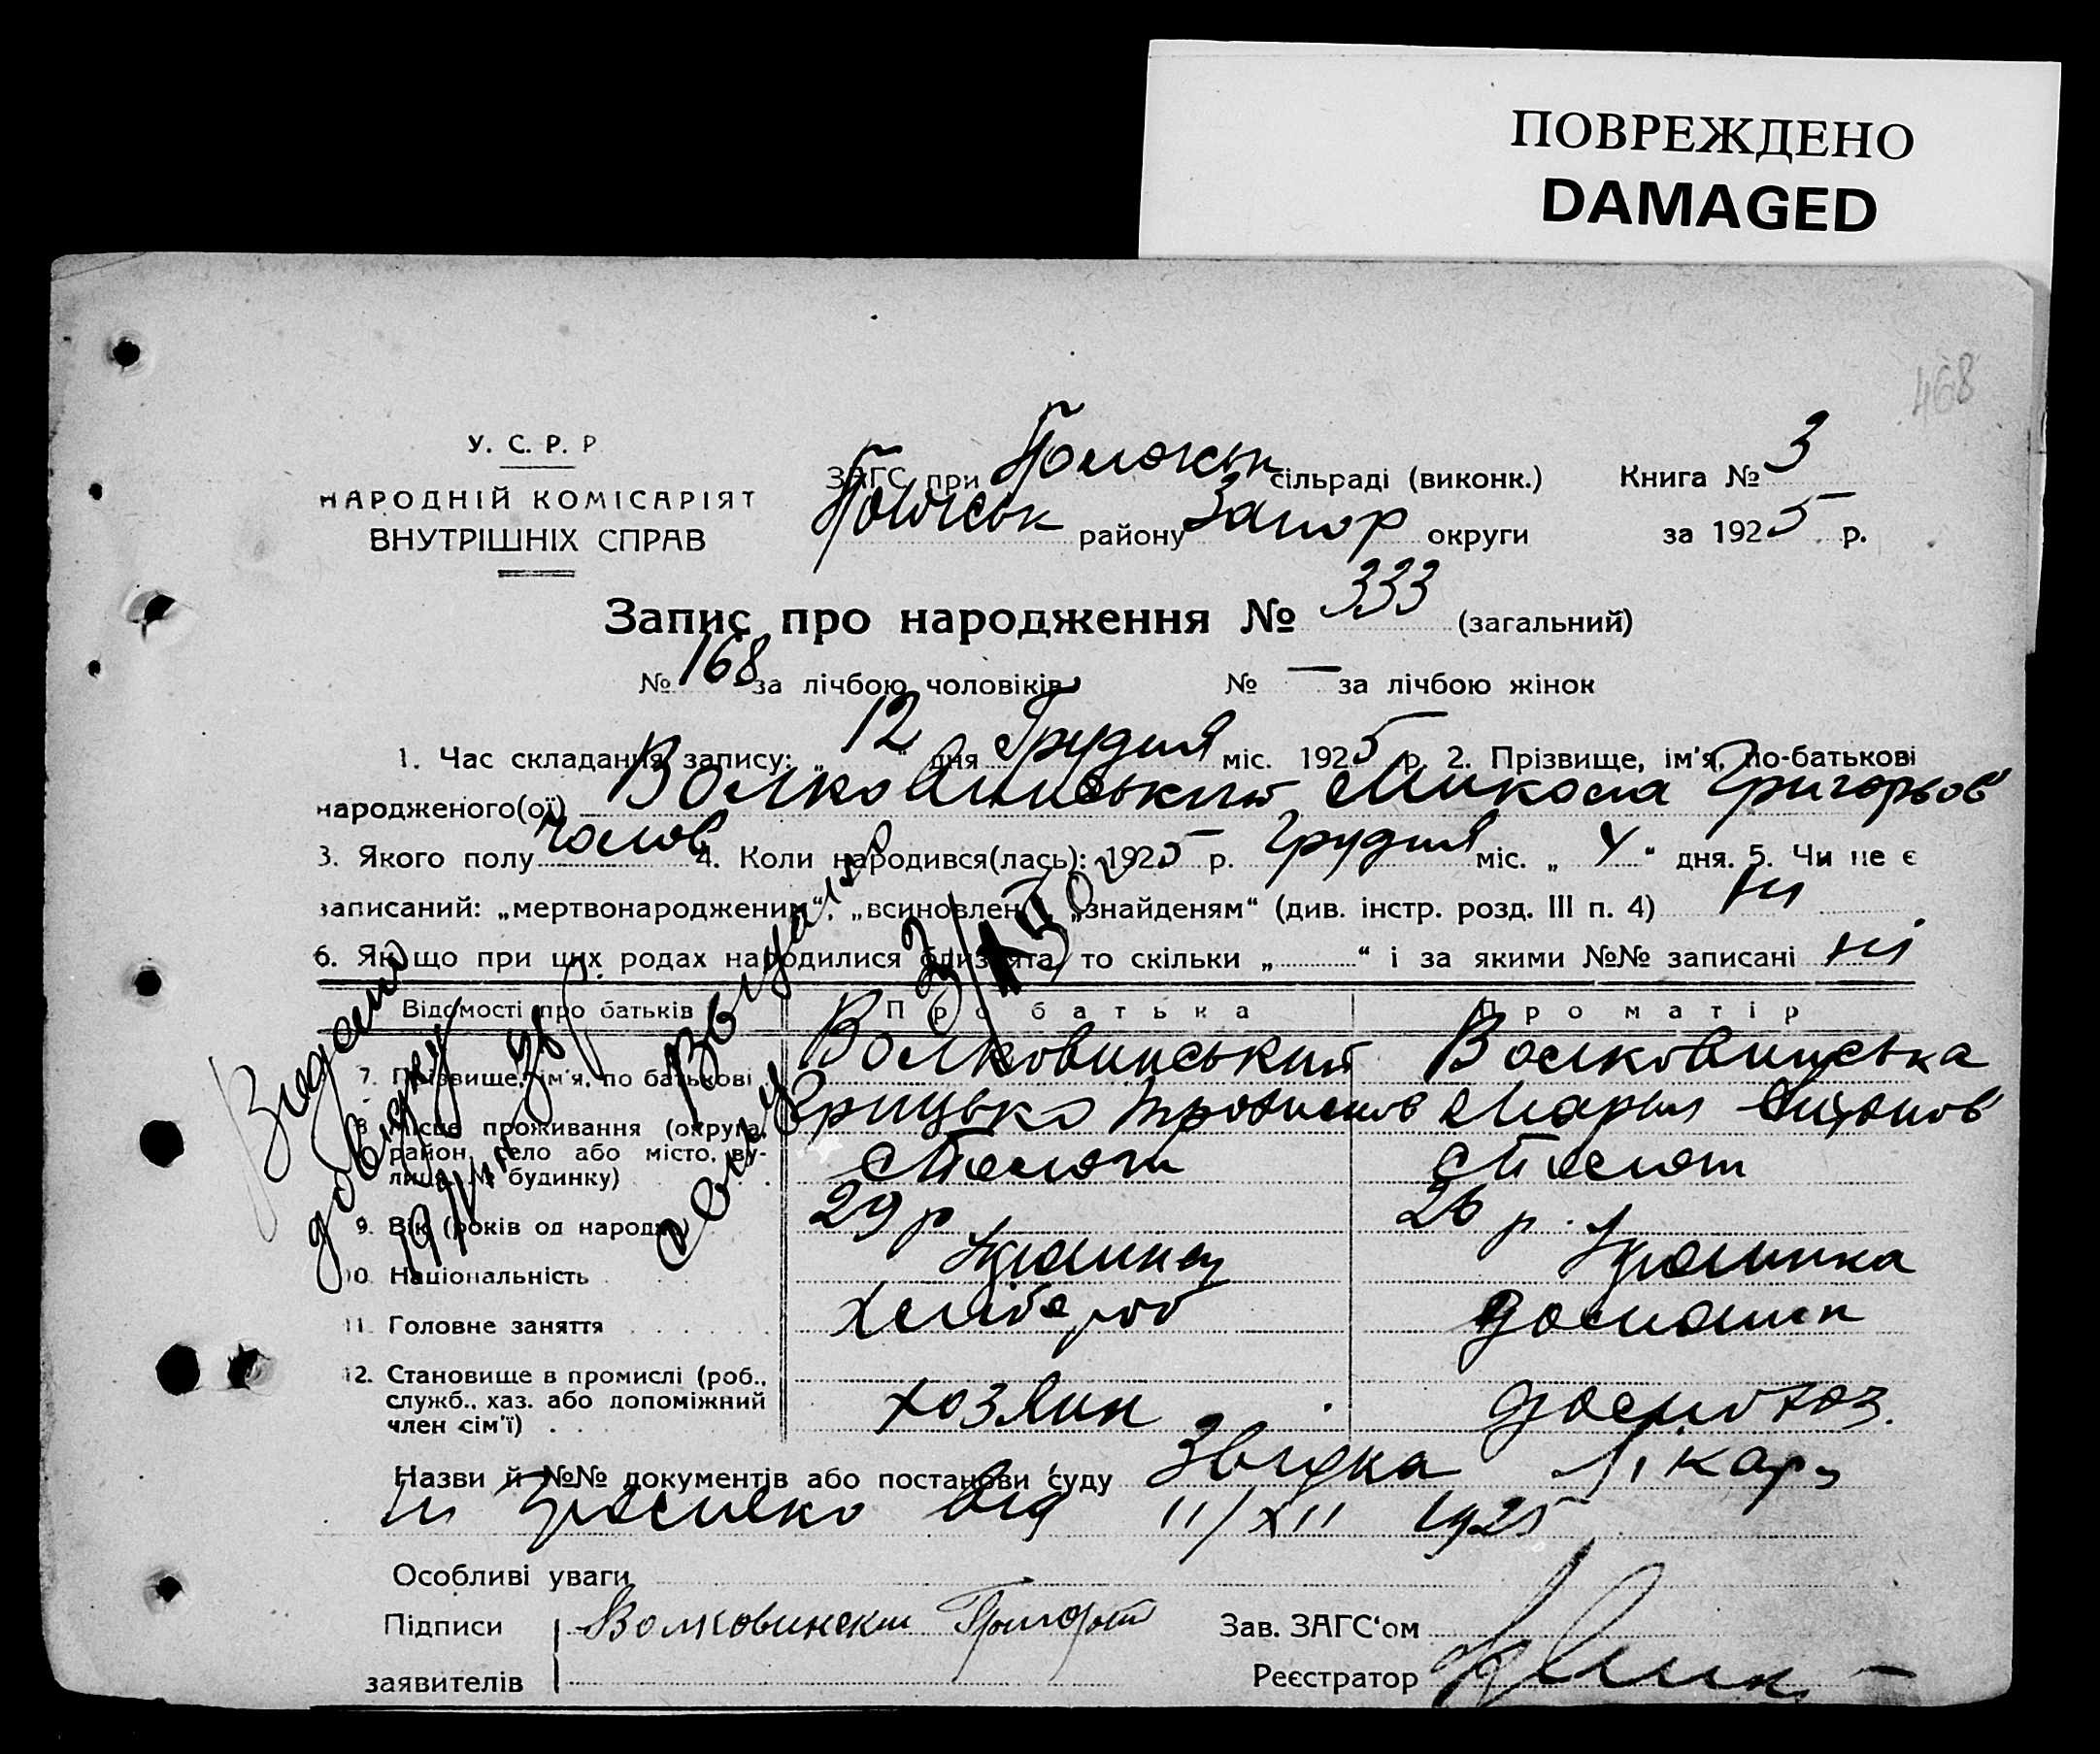 ПОВРЕЖДЕНО
DAMAGED
468
У. С. Р. Р
НАРОДНІЙ КОМІСАРІЯТ
ВНУТРІШНІХ СПРАВ
ЗАГС при Положськ сільраді (виконк.) Книга № 3
району Запор округи за 1925 р.
Запис про народження № 333 (загальний)
№ 168 за лічбою чоловіків № — за лічбою жінок
1. Час складання запису: „12“ дня Грудня міс. 1925 р. 2. Прізвище, ім'я, по-батькові
народженого(ої) Волковинський Микола Григорьов
3. Якого полу чолов 4. Коли народився(лась): 1925 р. Грудня міс. „ 4 “ дня. 5. Чи не є
записаний: „мертвонародженим“, „всиновленим“, „знайденям“ (див. інстр. розд. III п. 4) ні
6. Якщо при цих родах народилися близнята, то скільки „ “ і за якими №№ записані ні
Відомості про батьків Про батька Про матір
7. Прізвище, ім'я, по батькові Волковинський Волковинська
Грицько Марія
8. Місце проживання (округа,
район, село або місто, ву-
лиця, № будинку)
9. Вік (років од народж. 29 р 26 р.
10. Національність Українец Українка
11. Головне заняття хлібороб домашн
12. Становище в промислі (роб.,
служб., хаз. або допоміжний
член сім'ї) хозяин
Видано
довідку
Назви й №№ документів або постанови суду Звідка Лікаря
від 11/XII 1925
Особливі уваги
Підписи Волковински Григорий
заявителів
Зав. ЗАГС'ом
Реєстратор